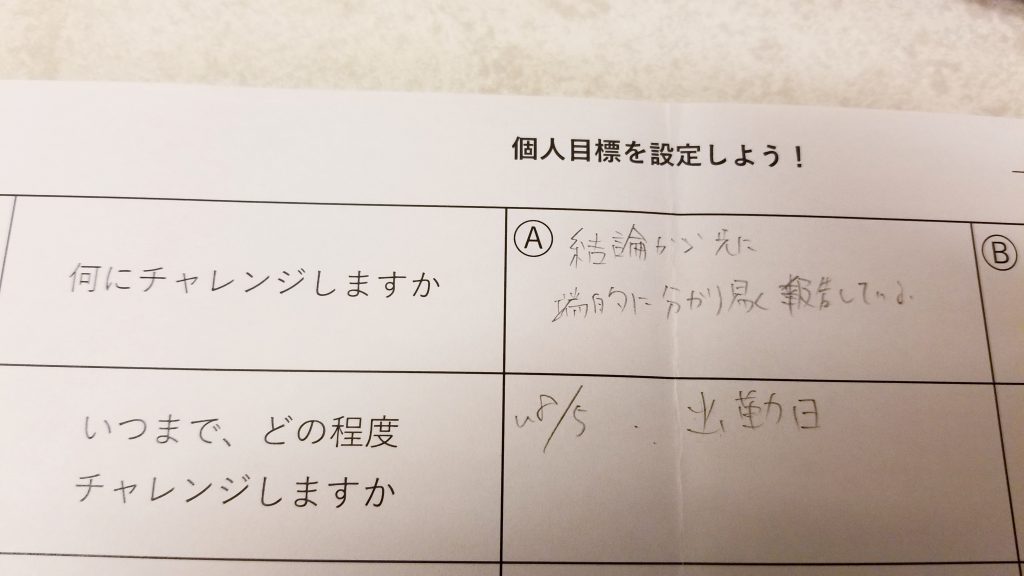 個人目標を設定しよう！
何にチャレンジしますか
Ⓐ 結論が先に
端的に分かり易く報告している。
Ⓑ
いつまで、どの程度
チャレンジしますか
8/5 出勤日